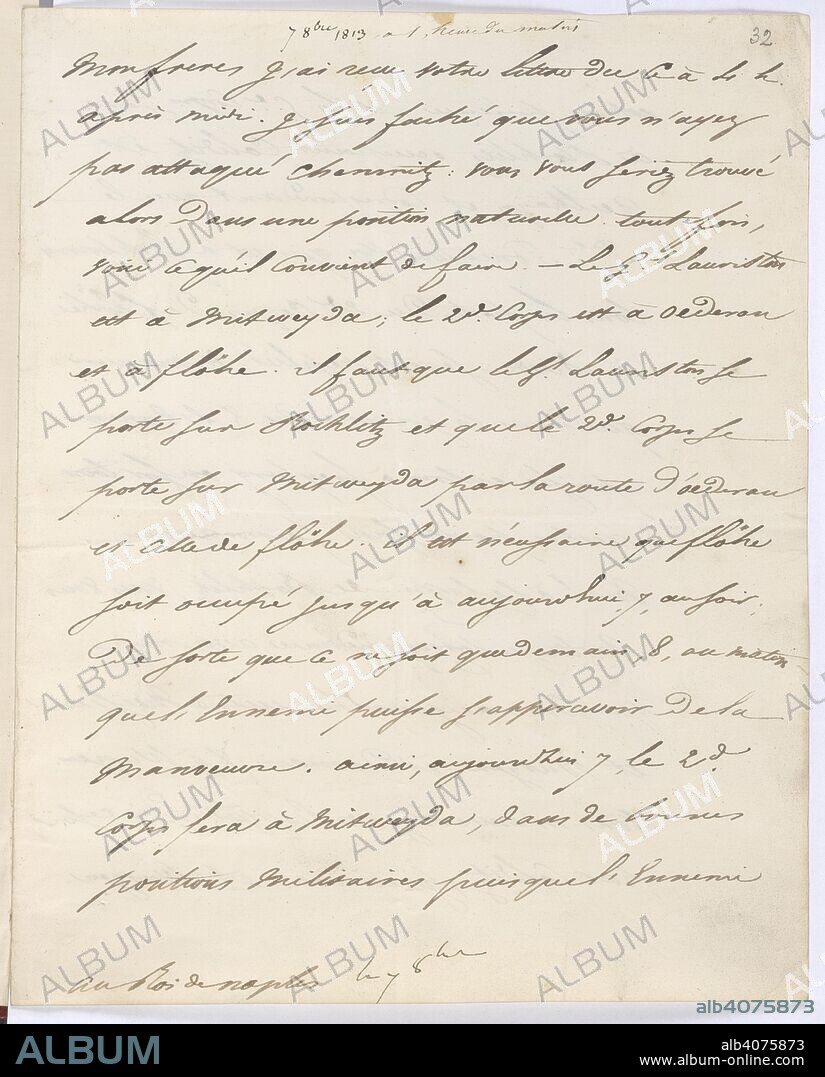 7 8bre 1813 a 1. heure du matin
32
Mon frere, j'ai recu votre lettre du 6 à 4 h.
après midi. Je suis faché que vous n'ayez
pas attaqué Chemnitz: vous vous seriez trouvé
alors dans une position naturelle. toutefois,
voici ce qu'il convient de faire. — Le Gal. Lauriston
est à Mitweyda; le 2d. Corps est à Oederan
et à flöhe. il faut que le Gal. Lauriston se
porte sur Rochlitz et que le 2d. Corps se
porte sur Mitweyda par la route d'oederan
et celle de flöhe. il est nécessaire que flöhe
soit occupé jusqu'à aujourd'hui, 7, au soir;
De sorte que ce ne soit que demain, 8, au matin
que l'Ennemi puisse s'appercevoir De la
Manoeuvre. ainsi, aujourd'hui 7, le 2d.
Corps sera à Mitweyda, dans de bonnes
positions Militaires puisque l'Ennemi
au Roi de naples le 7 8bre
ALBUM
alb4075873
ALBUM
alb4075873
www.album-online.com